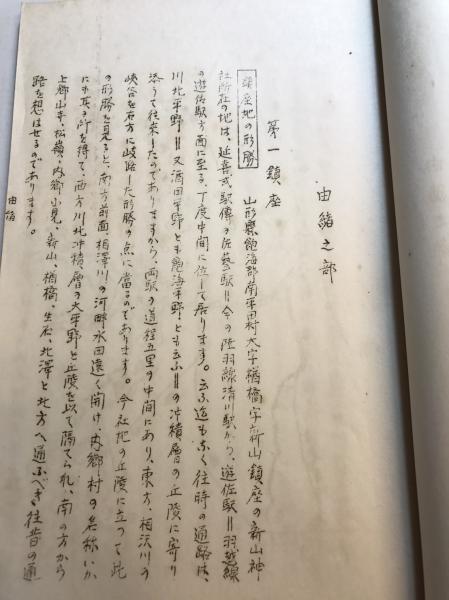 由緒之部
第一鎮座
鎮座地の形勝
山形縣飽海郡南平田村大字楢橋字新山鎮座の新山神
社所在の地は、延喜式駅傳の佐藝駅〓今の陸羽線清川駅から、遊佐駅〓羽越線
の遊佐駅方面に至る、丁度中間に位して居ります。云ふ迄もなく往時の通路は、
川北平野〓又酒田平野とも飽海平野とも云ふ〓の冲積層の丘陵に寄り
添うて往来したのでありますから、両駅の道程五里の中間にあり、東方、相沢川の
峡谷を右方に岐路した形勝の点に當るのであります。今社地の丘陵に立つて此
の形勝を見ると、南方前面相澤川の河畔水田遠く開け、内郷村の名称いか
にも其の所を得て、西方川北冲積層の大平野と丘陵を以て隔てられ、南の方から
上郷山寺、松嶺、内郷小見、新山、楢橋、生石、北澤と北方へ通ふべき往昔の通
路を想はせるのであります。
由緒